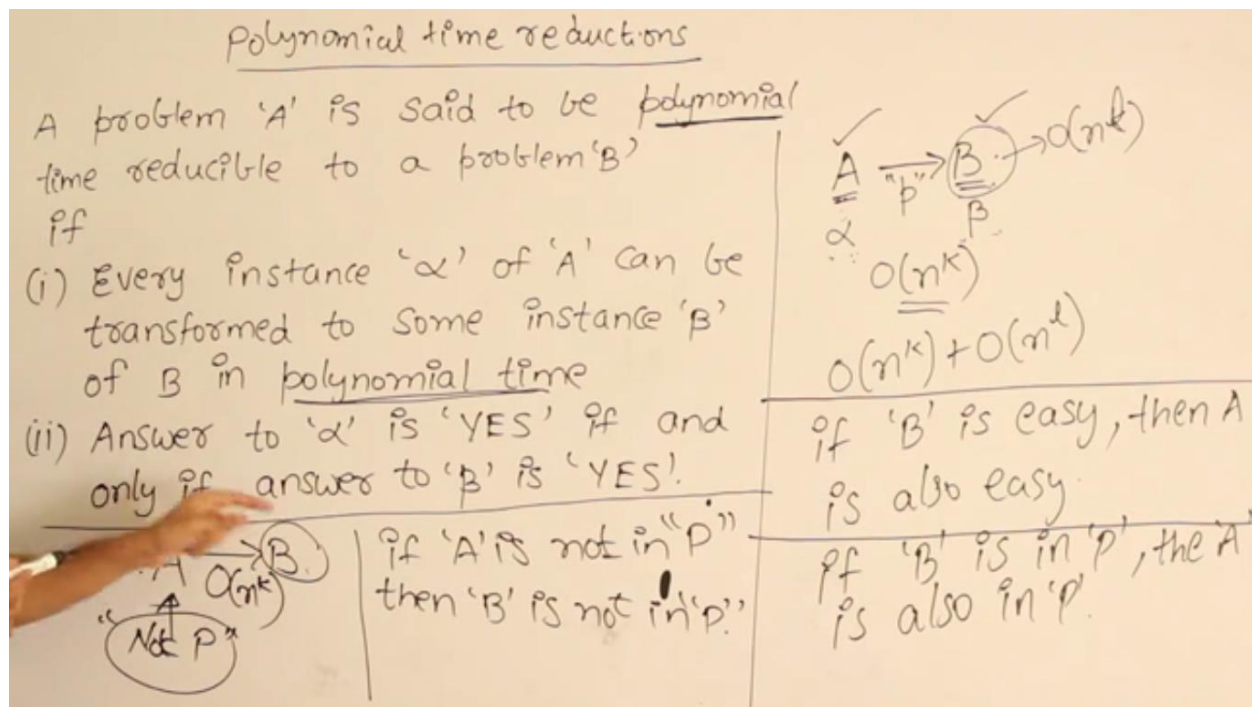 polynomial time reductions
A problem 'A' is said to be polynomial
time reducible to a problem 'B'
if
(i) Every instance 'α' of 'A' can be
transformed to some instance 'β'
of B in polynomial time
(ii) Answer to 'α' is 'YES' if and
only if answer to 'β' is 'YES'.
A → B
O(n^k)
"Not P"
if 'A' is not in "P"
then 'B' is not in "P"
A → B → O(n^l)
"P"
α β
O(n^k)
O(n^k) + O(n^l)
if 'B' is easy, then A
is also easy.
if 'B' is in 'P', the 'A'
is also in 'P'.